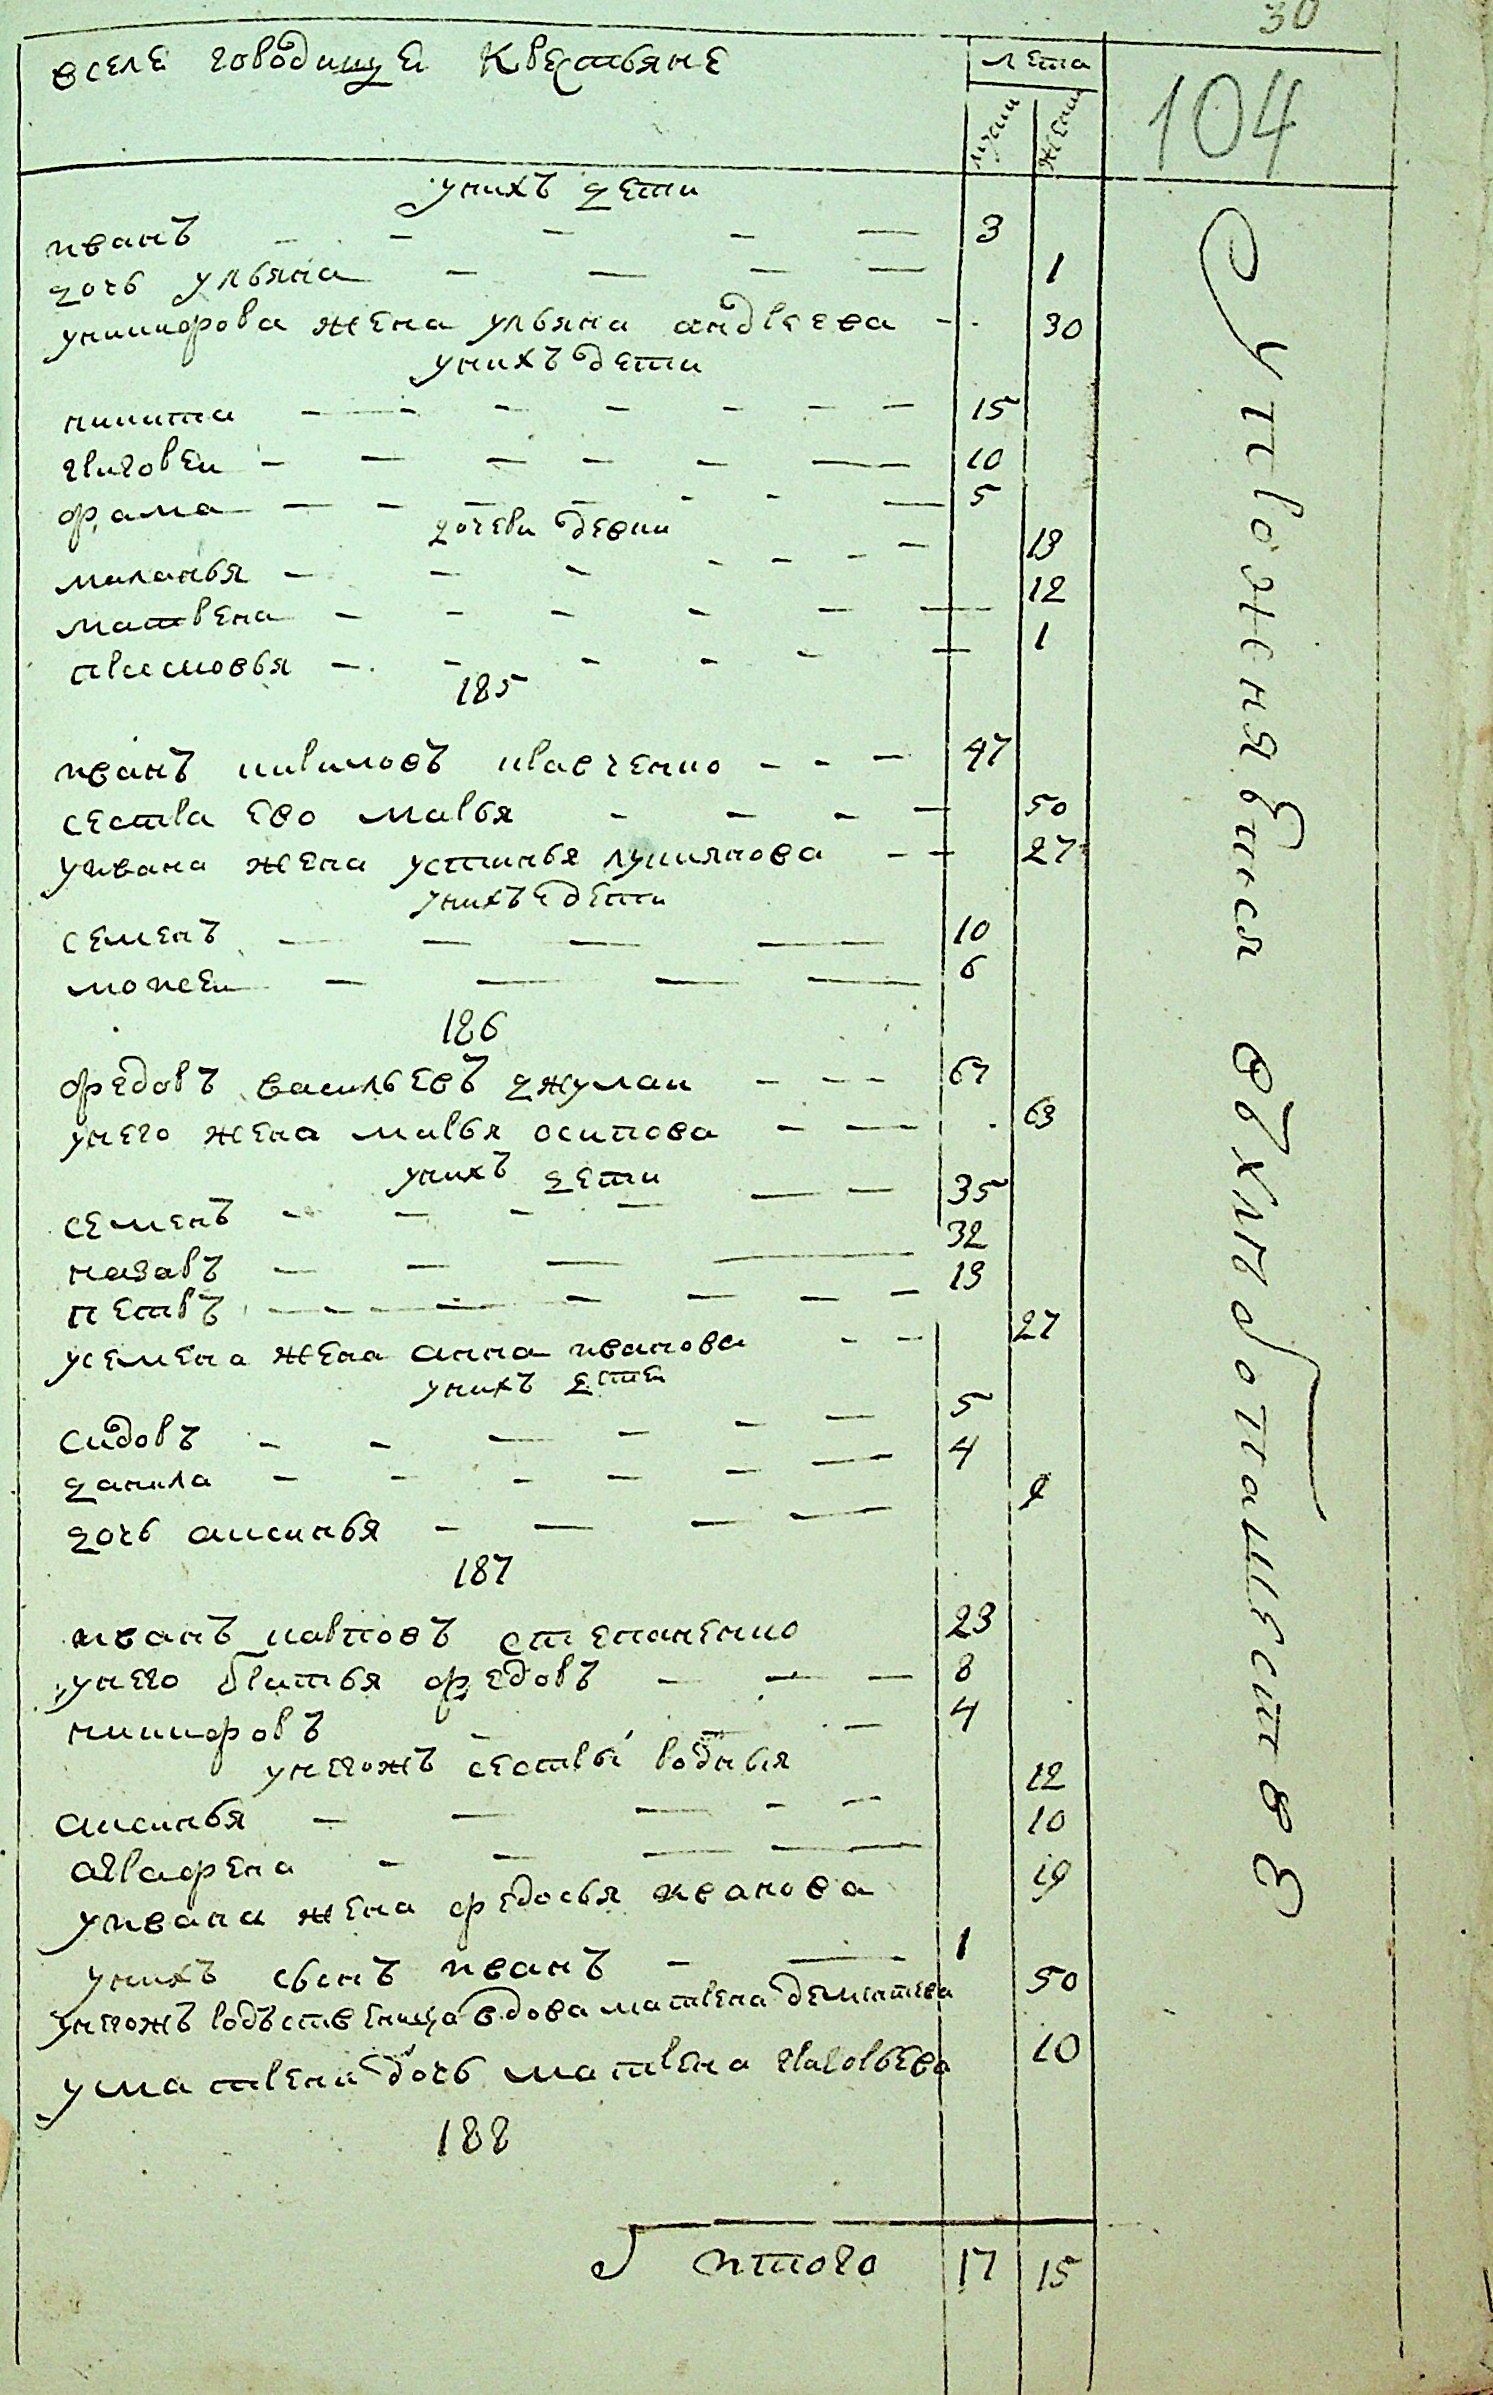 30
вселе городищуи крестьяне
лета
мужи
жени
104
унихъ дети
иванъ 3
дочь ульяна 1
уникифора жена ульяна андреева 30
унихъ дети
никита 15
григореи 10
фама 5
дочери девки
маланья 13
матрена 12
прасковья 1
185
иванъ кириловъ кравченко 47
сестра ево марья 50
уивана жена устинья лукиянова 27
унихъ дети
семенъ 10
моисеи 6
186
федоръ васильевъ джулаи 67
унего жена марья осипова 63
унихъ дети
семенъ 35
назаръ 32
петръ 13
усемена жена анна иванова 27
унихъ дети
сидоръ 5
данила 4
дочь аксинья
187
иванъ карповъ степаненко 23
унего братья федоръ 8
никифоръ 4
унегожъ сестры родныя
аксинья 12
аграфена 10
уивана жена федосья иванова 19
унихъ сынъ иванъ 1
унегожъ родъственица вдова матрена дементева 50
уматрены дочь матрена григорьева 10
188
итого 17 15